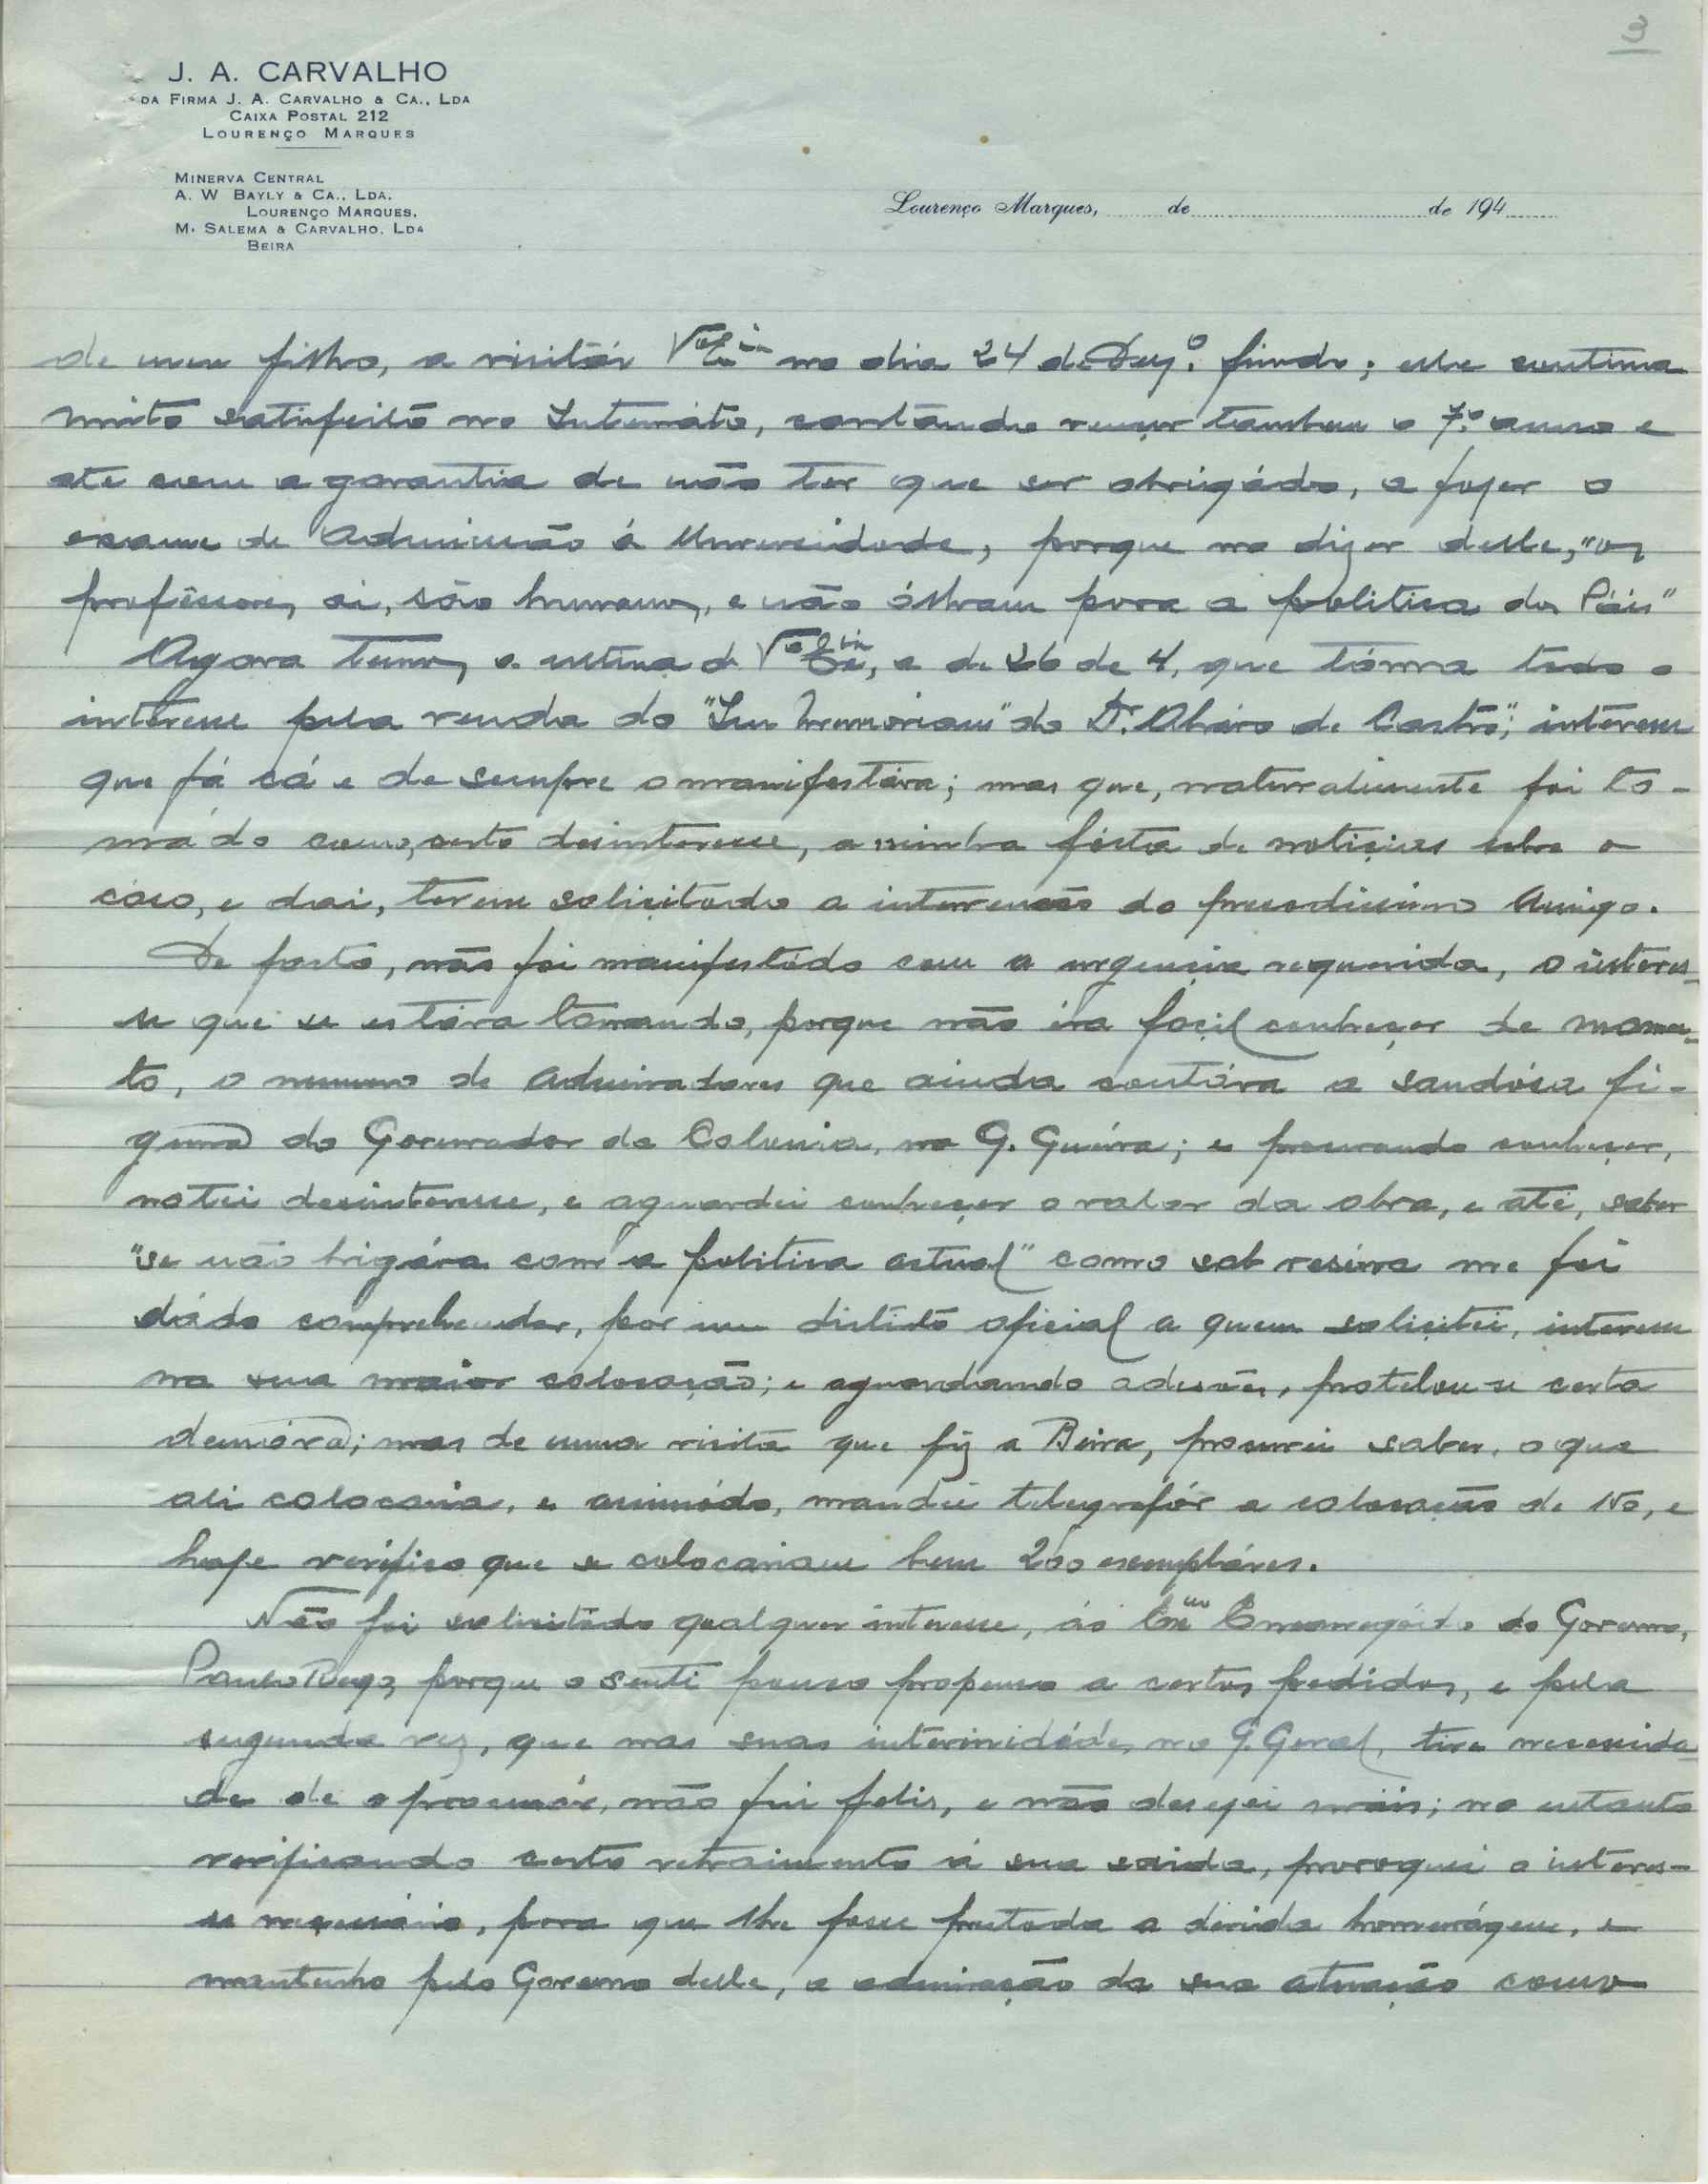 3
J. A. CARVALHO
DA FIRMA J. A. CARVALHO & CA., LDA
CAIXA POSTAL 212
LOURENÇO MARQUES
MINERVA CENTRAL
A. W BAYLY & CA., LDA.
LOURENÇO MARQUES.
M. SALEMA & CARVALHO, LDA
BEIRA
Lourenço Marques, de de 194
de meu filho, a visitár V. Exia no dia 24 de Dezº. findo; elle continua
muito satisfeito no Internáto, contando vençer tambem o 7.º anno e
até com a garantia de não ter que ser obrigádo, a fazer o
exame de Admissão á Universidade, porque no dizer delle, "os
profêssores, ai, são humanos, e não ólham para a politica do Páis"
Agora temos, a ultima de V. Exia, a de 26 de 4, que tóma todo o
interesse pela venda do "In Memoriam" do Dr. Alváro de Castro"; interesse
que já cá e de sempre o manifestára; mas que, naturalmente foi to-
mádo como, certo desinteresse, a minha fálta de notiçias sobre o
cáso, e dai, terem soliçitado a intervenção do presadissimo Amigo.
De facto, não foi manifestádo com a urgençia requerida, o interes-
se que se estáva tomando, porque não éra façil conheçer de momen-
to, o numero de Admiradores que ainda contára a saudósa fi-
gura do Governador da Colonia, na G. Guérra; e procurando conheçer,
notei desinteresse, e aguardei conheçer o valor da obra, e até, saber
"se não brigára com a politica actual" como sob resérva me foi
dádo comprehender, por um distinto oficial a quem soliçitei, interesse
na sua maior colocação; e aguardando adesões, protelou-se certa
demóra; mas de uma visita que fiz a Beira, procurei saber, o que
ali colocaria, e animádo, mandei telegrafár a colocação de 150, e
hoje verifico que se colocariam bem 200 exempláres.
Não foi solicitádo qualquer interesse, áo Exmo Encarregádo do Governo,
Paulo Rego, porque o senti pouco propenso a certos pedidos, e pela
segunda vez, que nas suas interinidádes, no G. Geral, tive necessida-
de de o procurár, não fui felis, e não desejei máis; no entanto
verificando certo retraimento á sua saida, provoquei o interes-
se neçessário, para que lhe fosse prestada a devida homenágem, e
mantenho pelo Governo delle, a admiração da sua atuação como